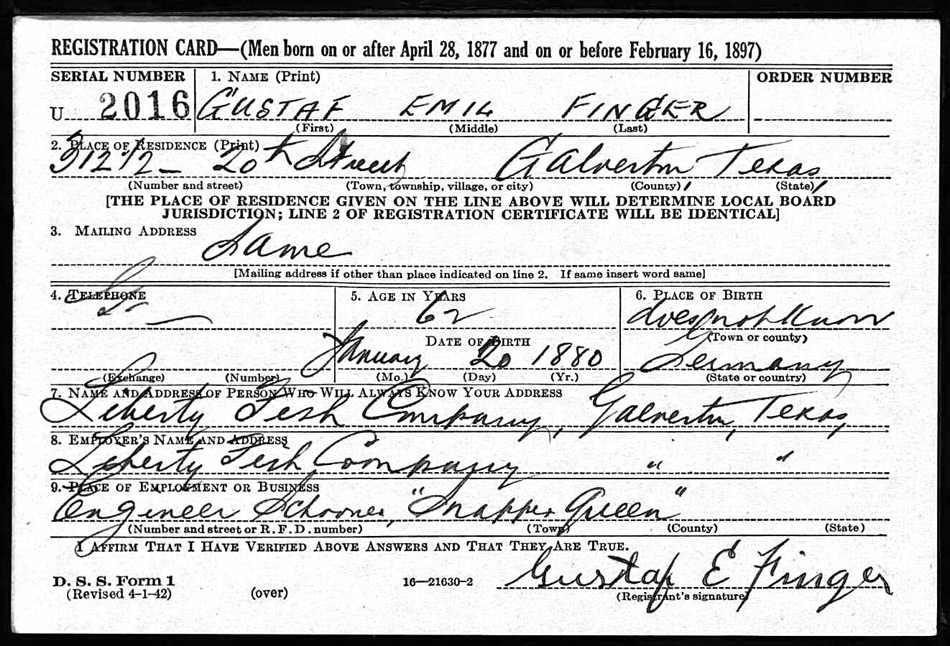 REGISTRATION CARD—(Men born on or after April 28, 1877 and on or before February 16, 1897)
SERIAL NUMBER 1. NAME (Print) ORDER NUMBER
U 2016 GUSTAF EMIL FINGER
(First) (Middle) (Last)
2. PLACE OF RESIDENCE (Print)
312 1/2 - 20th Street Galveston Texas
(Number and street) (Town, township, village, or city) (County) (State)
[THE PLACE OF RESIDENCE GIVEN ON THE LINE ABOVE WILL DETERMINE LOCAL BOARD
JURISDICTION; LINE 2 OF REGISTRATION CERTIFICATE WILL BE IDENTICAL]
3. MAILING ADDRESS
Same
[Mailing address if other than place indicated on line 2. If same insert word same]
4. TELEPHONE 5. AGE IN YEARS 6. PLACE OF BIRTH
62 does not know
DATE OF BIRTH (Town or county)
January 20 1880 Germany
(Exchange) (Number) (Mo.) (Day) (Yr.) (State or country)
7. NAME AND ADDRESS OF PERSON WHO WILL ALWAYS KNOW YOUR ADDRESS
Liberty Fish Company, Galveston, Texas,
8. EMPLOYER'S NAME AND ADDRESS
Liberty Fish Company " "
9. PLACE OF EMPLOYMENT OR BUSINESS
Engineer Schooner, "Snapper Queen"
(Number and street or R. F. D. number) (Town) (County) (State)
I AFFIRM THAT I HAVE VERIFIED ABOVE ANSWERS AND THAT THEY ARE TRUE.
Gustaf E Finger
D. S. S. Form 1 16—21630-2
(Revised 4-1-42) (over) (Registrant's signature)